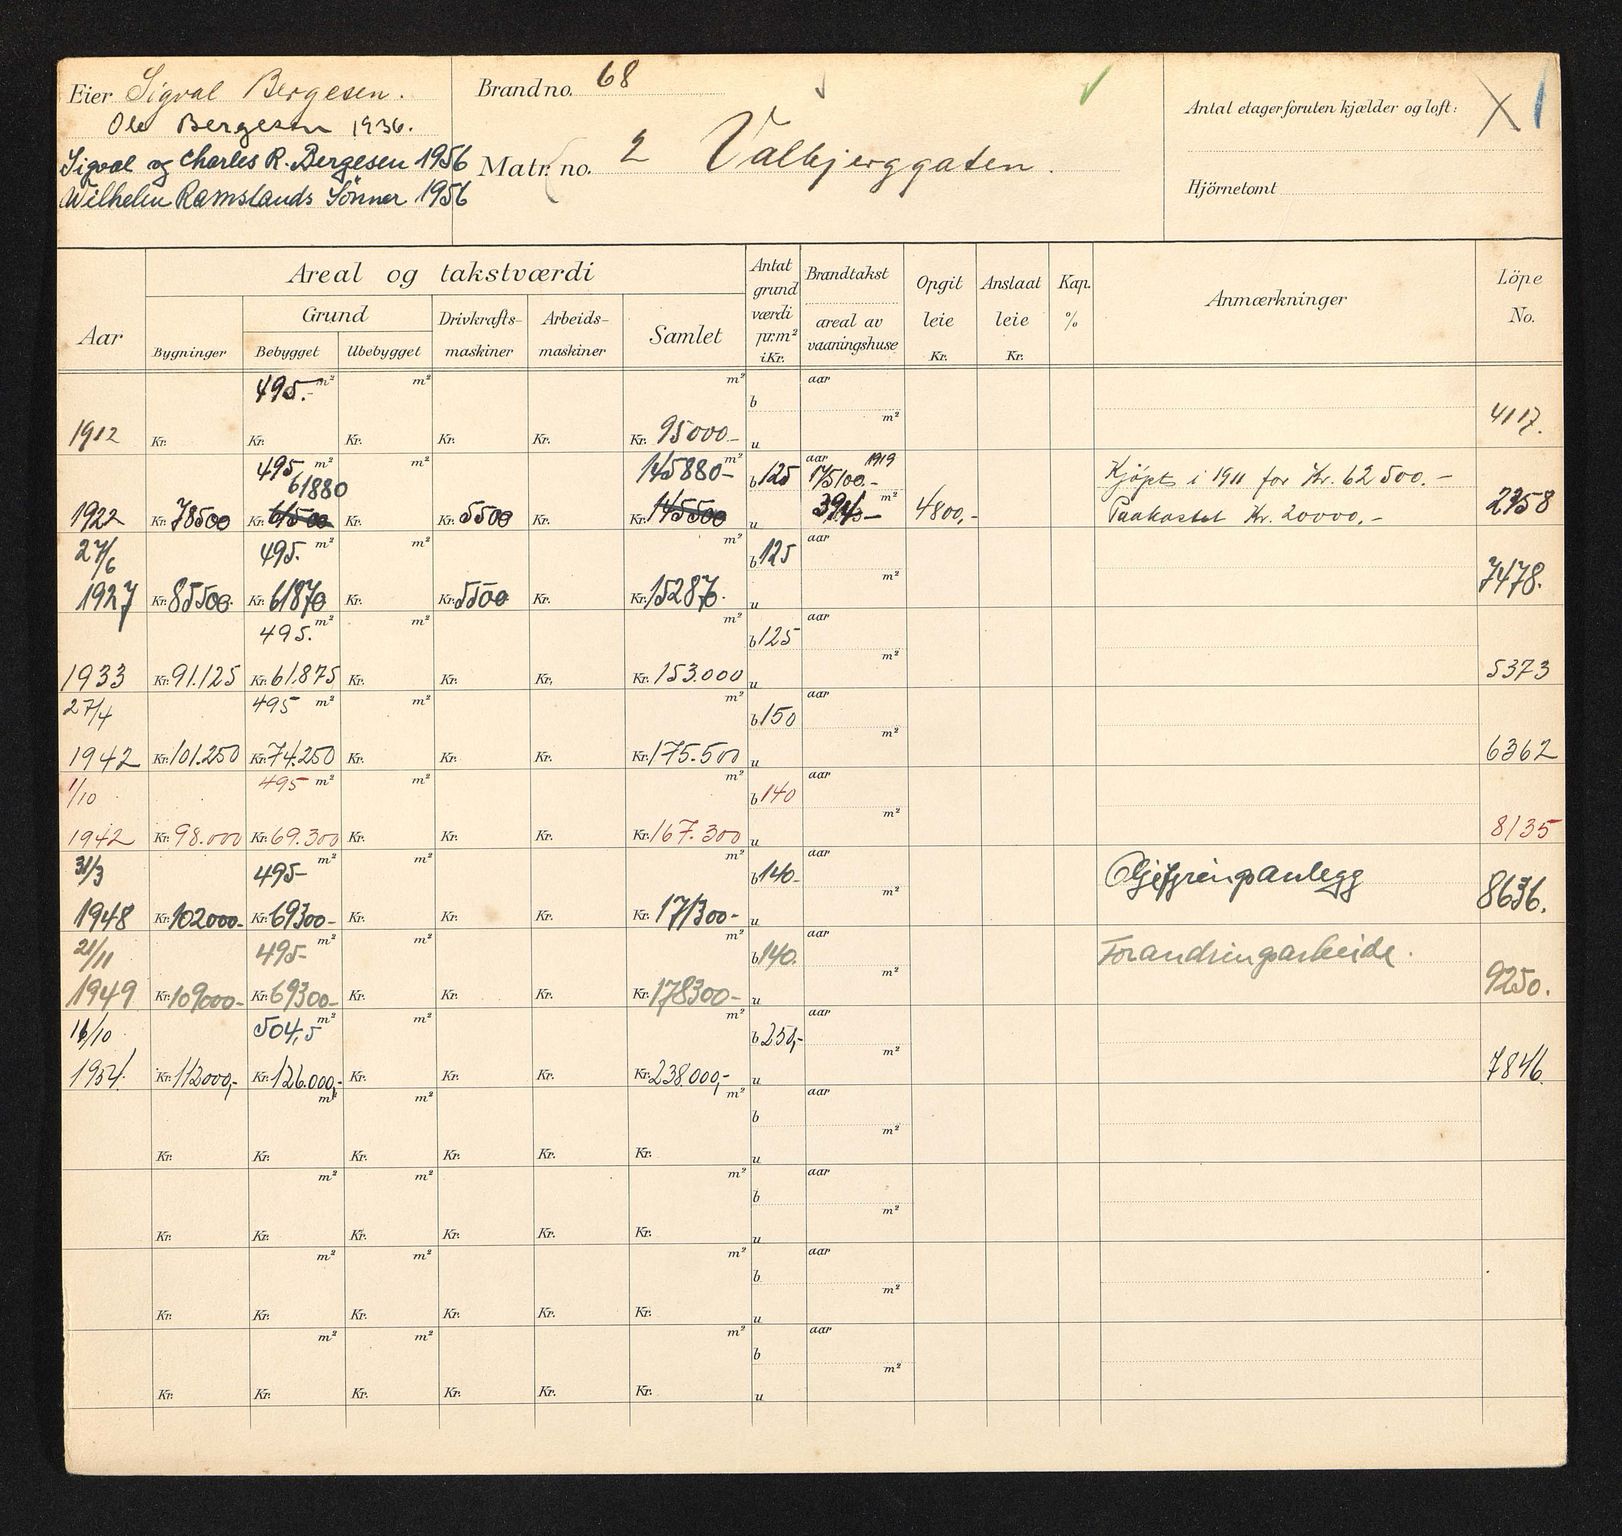 Eier Sigval Bergesen.
Ole Bergesen 1936.
Sigval og Charles R. Bergesen 1956
Wilhelm Ramslands Sönner 1956
Brand no. 68
Matr. no. 2 Valbjerggaten.
Antal etager foruten kjælder og loft: X 1
Hjörnetomt
Aar
Areal og takstværdi
Bygninger
Grund
Bebygget Ubebygget
Drivkrafts-
maskiner
Arbeids-
maskiner
Samlet
Antat
grund
værdi
pr.m²
i Kr.
Brandtakst
areal av
vaaningshuse
Opgit
leie
Kr.
Anslaat
leie
Kr.
Kap.
%
Anmærkninger
Löpe
No.
495.- m² m² m² aar
b
m²
1912 Kr. Kr. Kr. Kr. Kr. Kr. 95000.- u 4117.
495 m² m² 145880- m² b 125 aar 1919
61880 175100.- Kjøpt i 1911 for Kr. 62500.-
1922 Kr. 78500 Kr. 61500 Kr. Kr. 5500 Kr. 145500 u m² 4800,- Paakostet Kr. 20000,- 2358
27/6 495. m² m² m² b 125 aar
m²
1927 Kr. 85500. Kr. 61870 Kr. Kr. 5500 Kr. Kr. 152870. u 7478.
495. m² m² m² b 125 aar
m²
1933 Kr. 91.125 Kr. 61.875 Kr. Kr. Kr. Kr. 153.000 u 5373
27/4 495 m² m² m² b 150 aar
m²
1942 Kr. 101.250 Kr. 74.250 Kr. Kr. Kr. Kr. 175.500 u 6362
1/10 495 m² m² m² b 140 aar
m²
1942 Kr. 98.000 Kr. 69.300 Kr. Kr. Kr. Kr. 167.300 u 8135
31/3 495- m² m² m² b 140- aar Oljefyringsanlegg
m²
1948 Kr. 102000- Kr. 69300- Kr. Kr. Kr. Kr. 171300- u 8636.
21/11 495- m² m² m² b 140. aar Forandringsarbeide.
m²
1949 Kr. 109000- Kr. 69300- Kr. Kr. Kr. Kr. 178300- u 9250.
16/10 504,5 m² m² m² b 250,- aar
m²
1954. Kr. 112000,- Kr. 126.000,- Kr. Kr. Kr. Kr. 238.000,- u 7846.
m² m² m² aar
b
m²
Kr. Kr. Kr. Kr. Kr. Kr. u
m² m² m² aar
b
m²
Kr. Kr. Kr. Kr. Kr. Kr. u
m² m² m² aar
b
m²
Kr. Kr. Kr. Kr. Kr. Kr. u
m² m² m² aar
b
m²
Kr. Kr. Kr. Kr. Kr. Kr. u